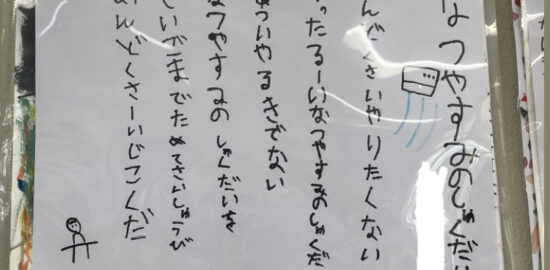 なつやすみのしゅくだ
んどくさいやりたくない
ったるーいなつやすみのしゅくだ
あついやるきでない
なつやすみのしゅくだいを
いごまでためてさいしゅうび
めんどくさーいじこくだ